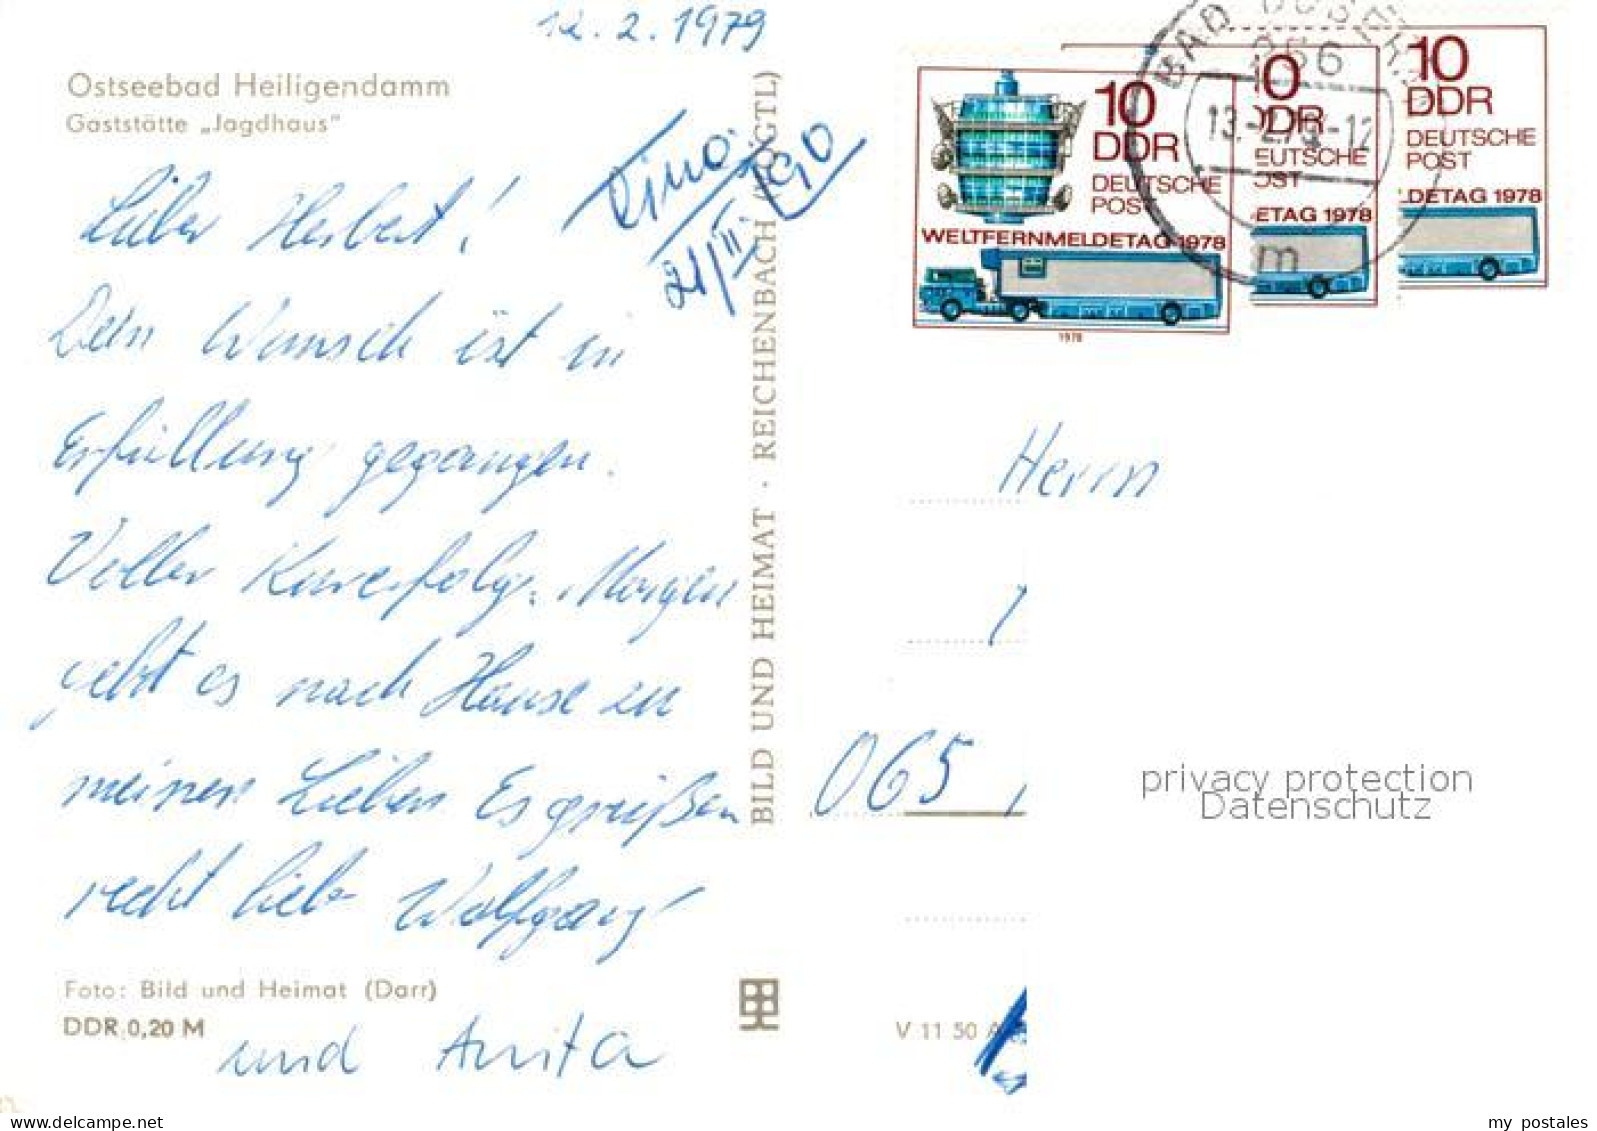 12.2.1979
Ostseebad Heiligendamm
Gaststätte „Jagdhaus"
Lieber Herbert!
Dein Wunsch ist in
Erfüllung gegangen.
Voller Kurerfolg. Morgen
geht es nach Hause zu
meinen Lieben Es grüßen
recht lieb Wolfgang
und Anita
Foto: Bild und Heimat (Darr)
DDR 0,20 M
21/II
BILD UND HEIMAT · REICHENBACH (VOGTL)
V 11 50 A
10
DDR
DEUTSCHE
POST
WELTFERNMELDETAG 1978
1978
10
DDR
EUTSCHE
OST
ETAG 1978
10
DDR
DEUTSCHE
POST
LDETAG 1978
BAD
13.-2.79.-12
m
Herrn
065
privacy protection
Datenschutz
www.delcampe.net
my_postales